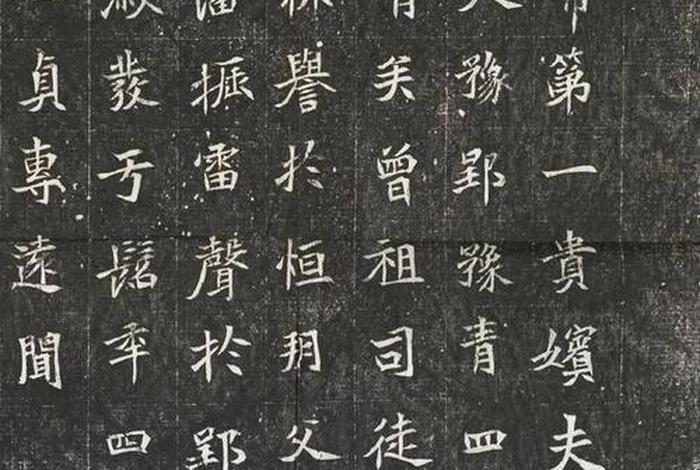 第一貴嬪夫
豫郢豫青四
矣曾祖司徒
譽於恒朔父
振雷聲於郢
發于髫年四
貞專遠聞